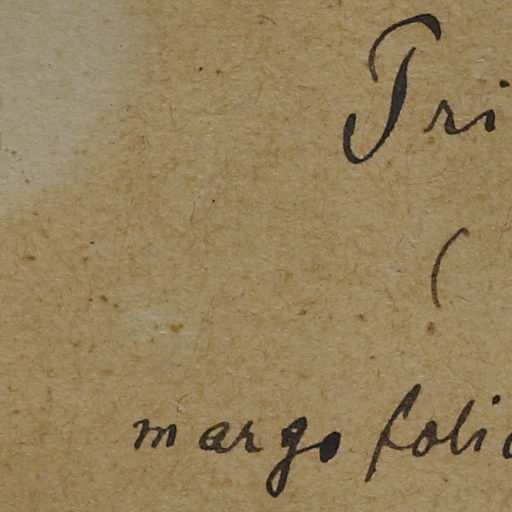 Tri
(
margo foli